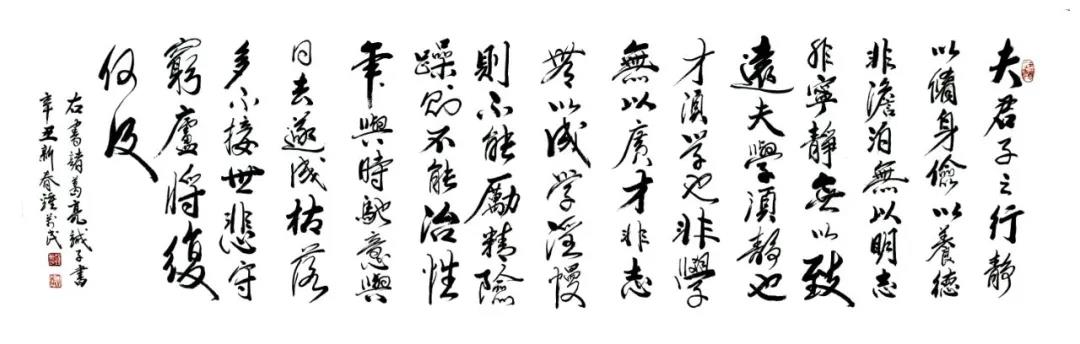 夫君子之行靜
以脩身儉以養德
非澹泊無以明志
非寧靜无以致
遠夫學須靜也
才須學也非學
無以廣才非志
無以成學淫慢
則不能勵精險
躁則不能治性
年與時馳意與
日去遂成枯落
多不接世悲守
窮廬將復
何及
右書諸葛亮誡子書
辛丑新春